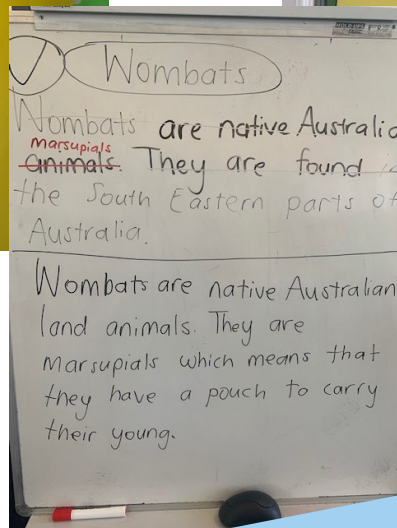 Wombats
Wombats are native Australia
marsupials
animals. They are found
the South Eastern parts of
Australia.
Wombats are native Australian
land animals. They are
Marsupials which means that
they have a pouch to carry
their young.